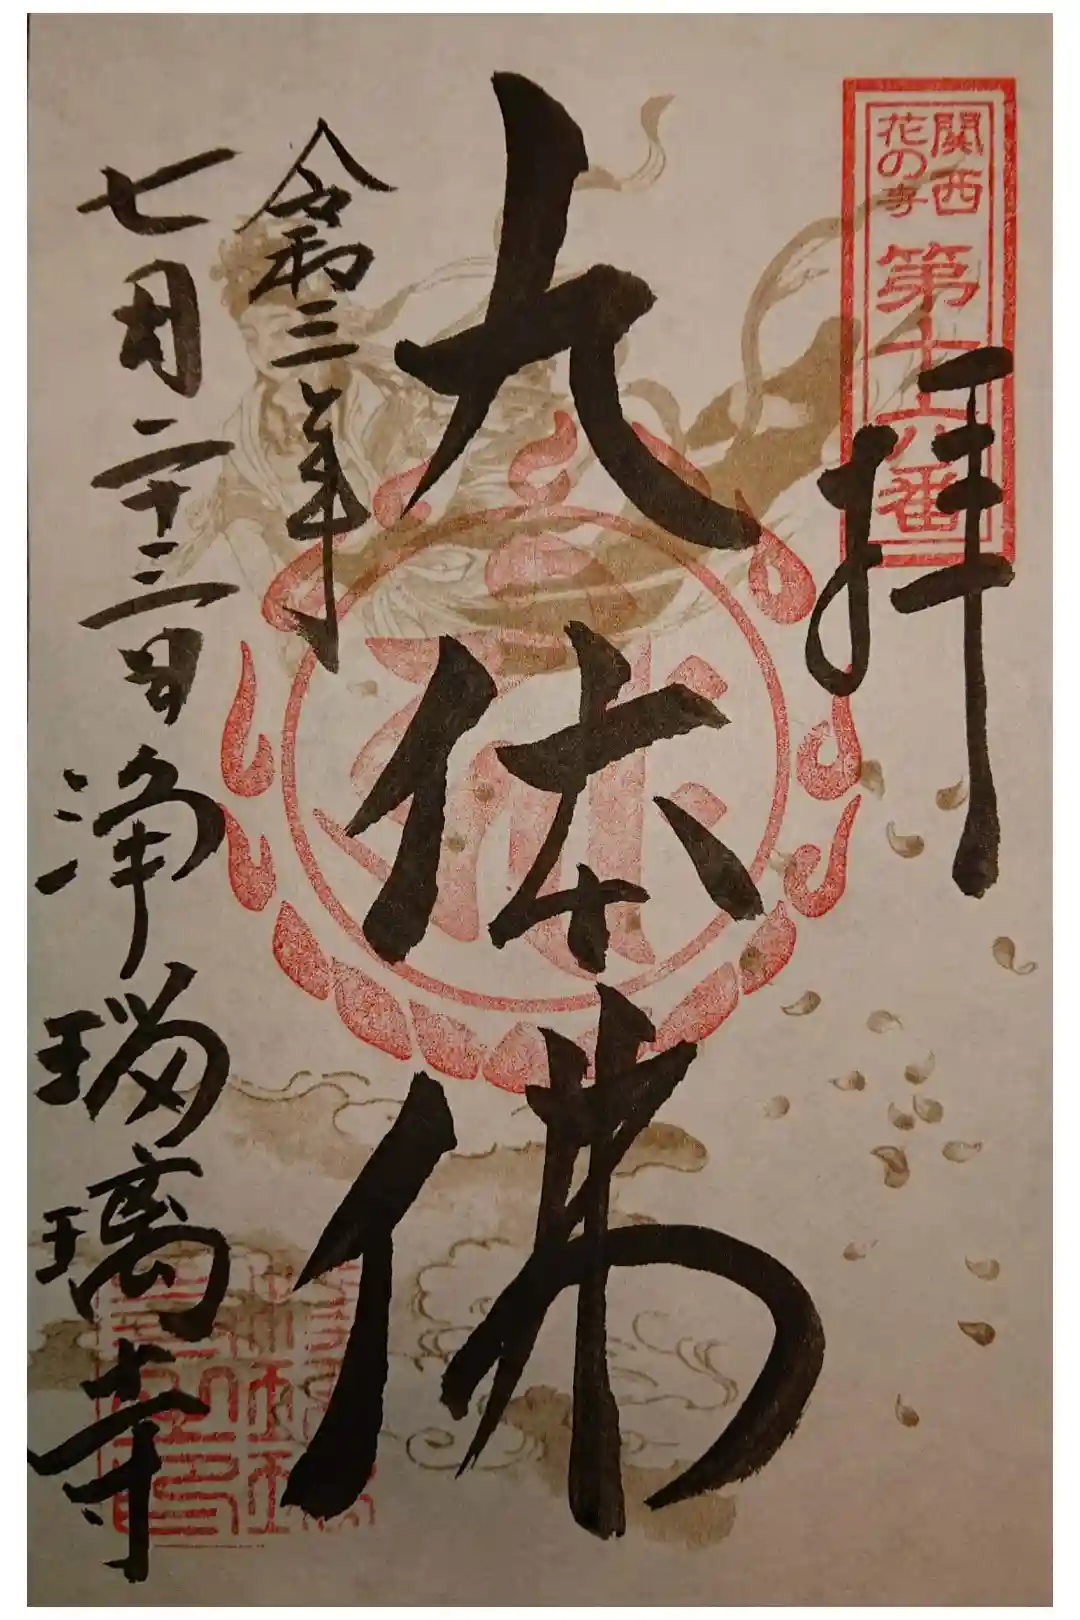 関西
花の寺
第十六番
拝
九体佛
令和三年
七月二十三日
浄瑠璃寺